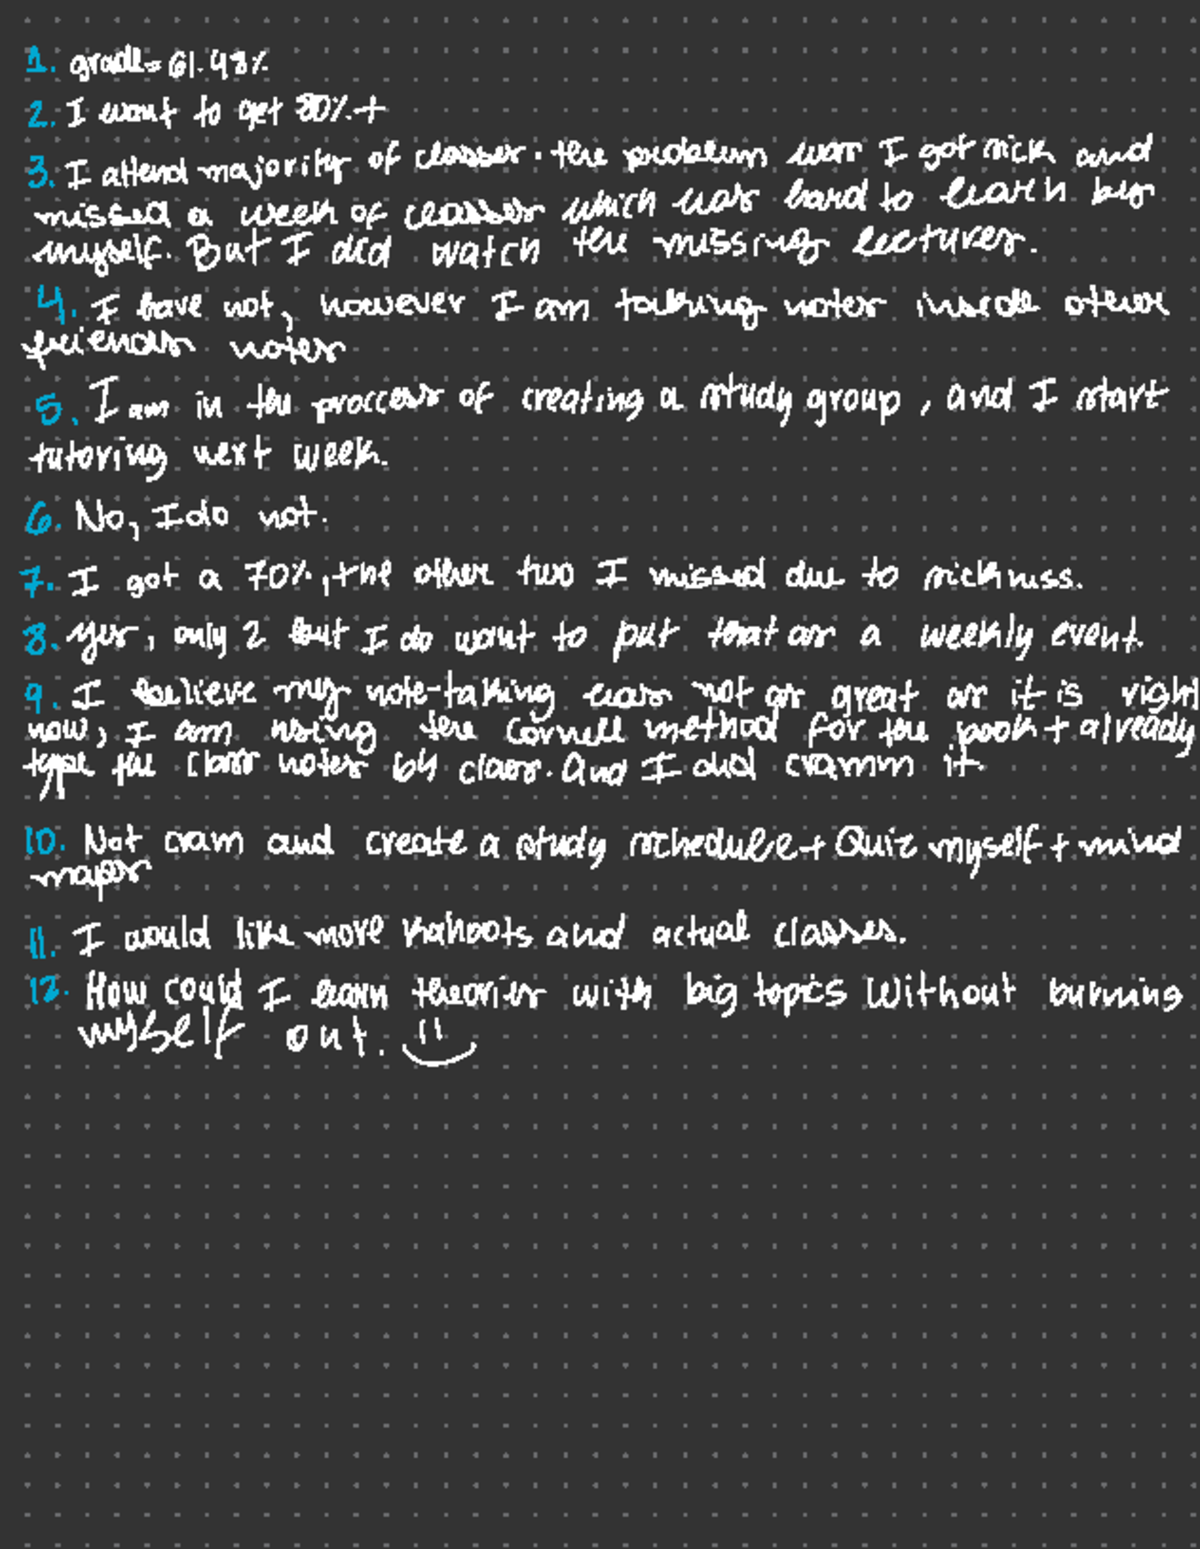 1. grade= 61.48%
2. I want to get 80%.+
3. I attend majority of classes. the problem was I got sick and
missed a week of classes which was hard to learn by
myself. But I did watch the missing lectures.
4. I have not, however I am taking notes inside other
friends notes
5. I am in the proccess of creating a study group, and I start
tutoring next week.
6. No, I do not.
7. I got a 70%, the other two I missed due to sickness.
8. yes, only 2 but I do want to put that as a weekly event.
9. I believe my note-taking was not as great as it is right
now, I am using the Cornell method for the book + already
type the class notes b4 class. And I did cramm it.
10. Not cram and create a study schedule + Quiz myself + mind
mapes
11. I would like more kahoots and actual classes.
12. How could I learn theories with big topics without burning
myself out.